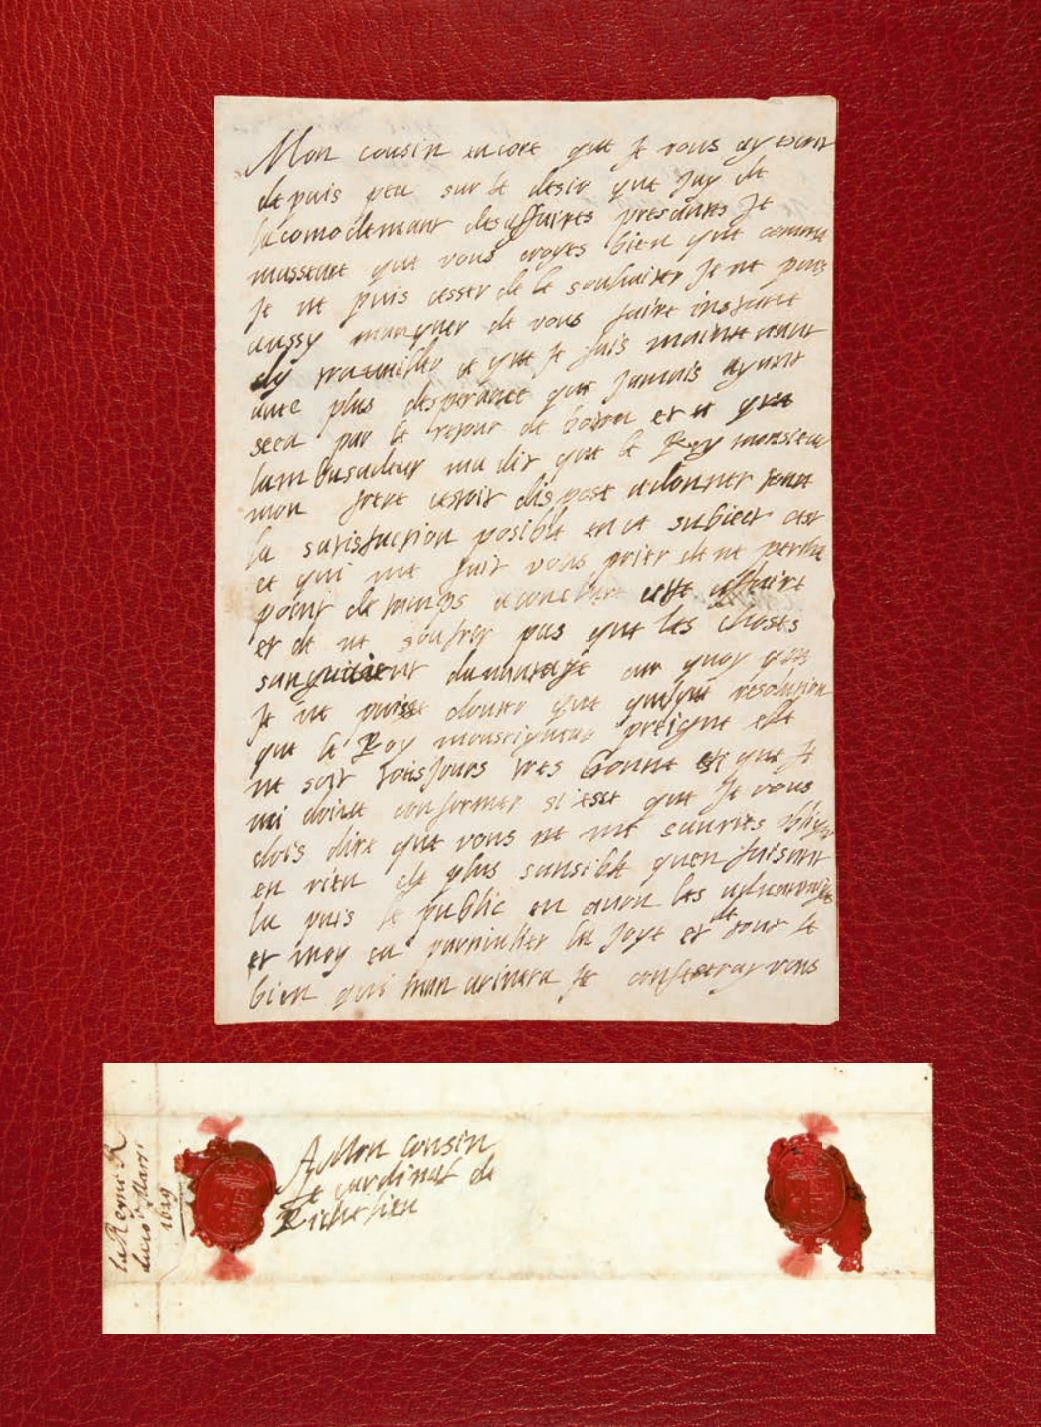 Mon cousin encore que Je vous ay escrit
depuis peu sur le desir que Jay de
lacomodemant des affaires presantes Je
masseure que vous croyes bien que comme
Je ne puis cesser de le souhaiter Je ne puis
aussy manquer de vous faire instance
dy travailler et que Je suis maintenant
avec plus desperance que Jamais ayant
sceu par le retour de et ce que
lambasadeur ma dit que le Roy monsieur
mon frere estoit dispose a donner toute
la satisfaction posible en ce subiect cest
ce qui me fait vous prier de ne perdre
point de temps a conclure cette affaire
et de ne soufrir pas que les choses
sanguisent davantage car quoy que
Je ne puisse douter que quelque resolution
que le Roy monseigneur preigne elle
ne soit tousjours tres bonne et que Je
mi doive conformer si esce que Je vous
dois dire que vous ne me sauries obliger
en rien de plus sansible quen faisant
la pais le public en aura les
et moy en particulier la Joye et de tout le
bien qui man arivera Je confesseray vous
A Mon cousin
Le cardinal de
Richelieu
la Reyne
du 10 Mars
1629